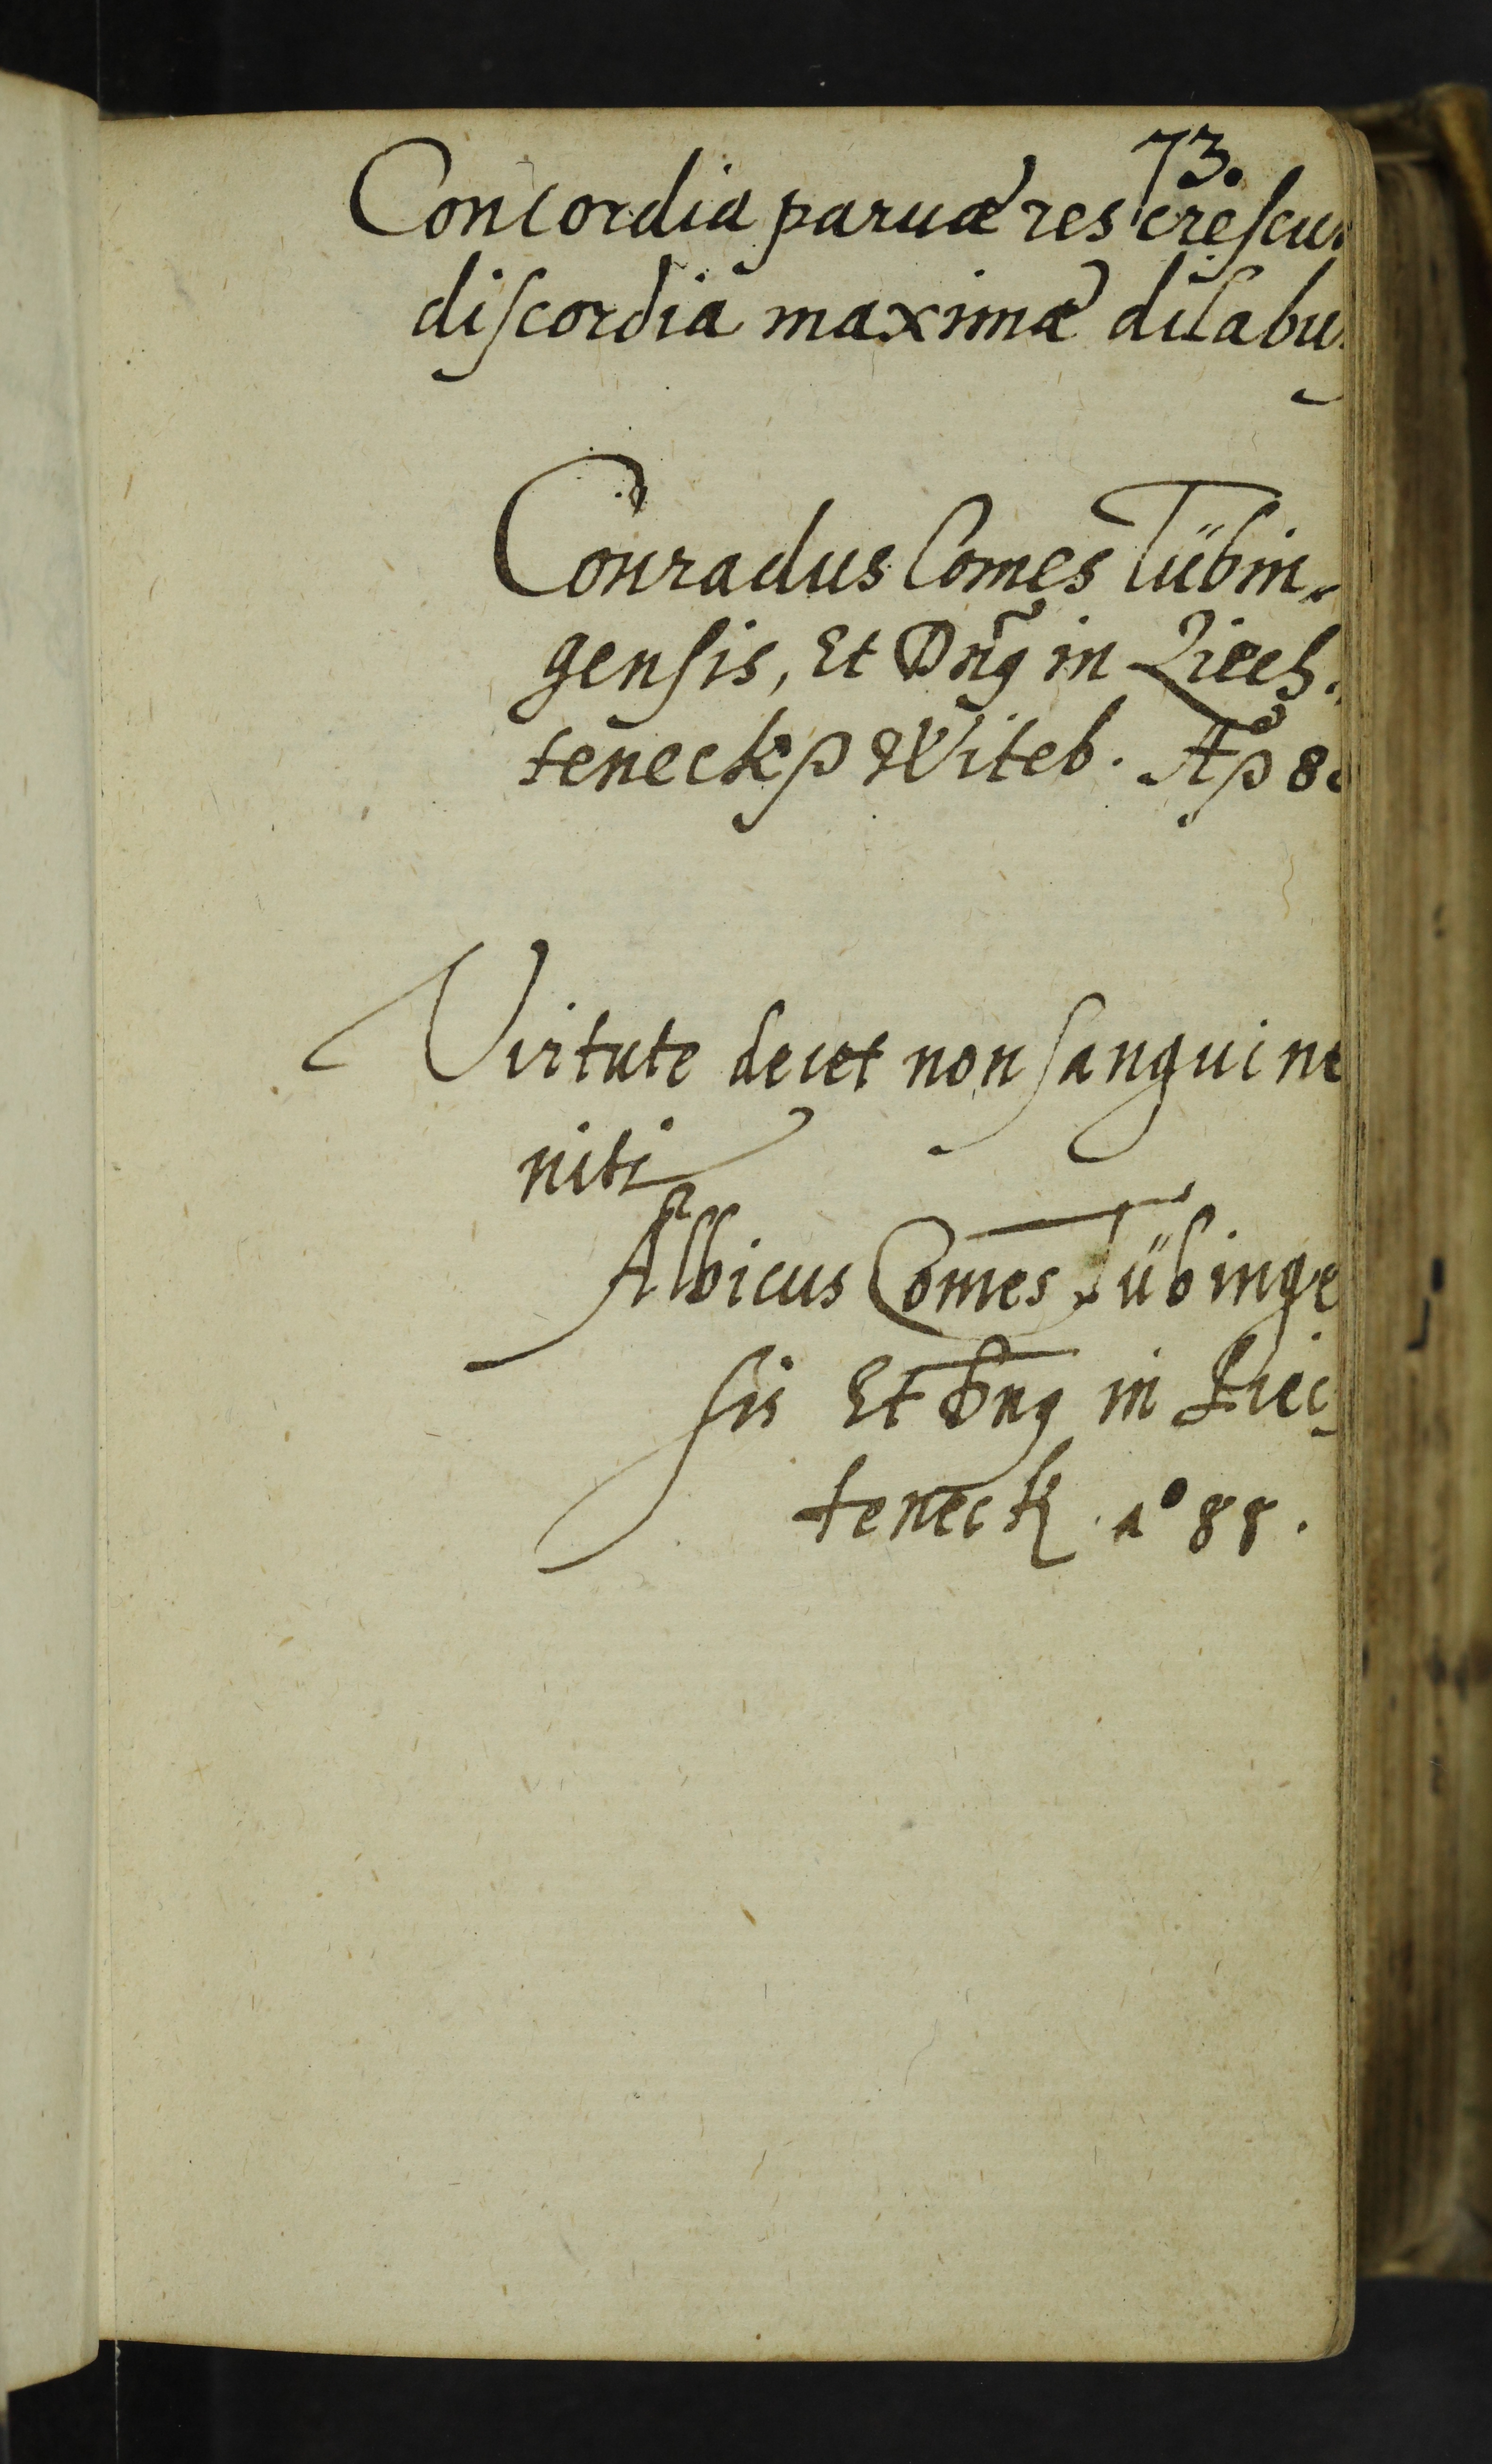 73.
Concordia paruæ res crescu
discordia maximæ dilabu
Conradus Comes Tübin„
gensis, Et Dn̄s in Liech„
teneckh Witeb. Aº 8
Virtute decet non sanguine
niti
Albicus Comes Tübinge
sis Et Dn̄s in Liec
teneck. Aº 88.